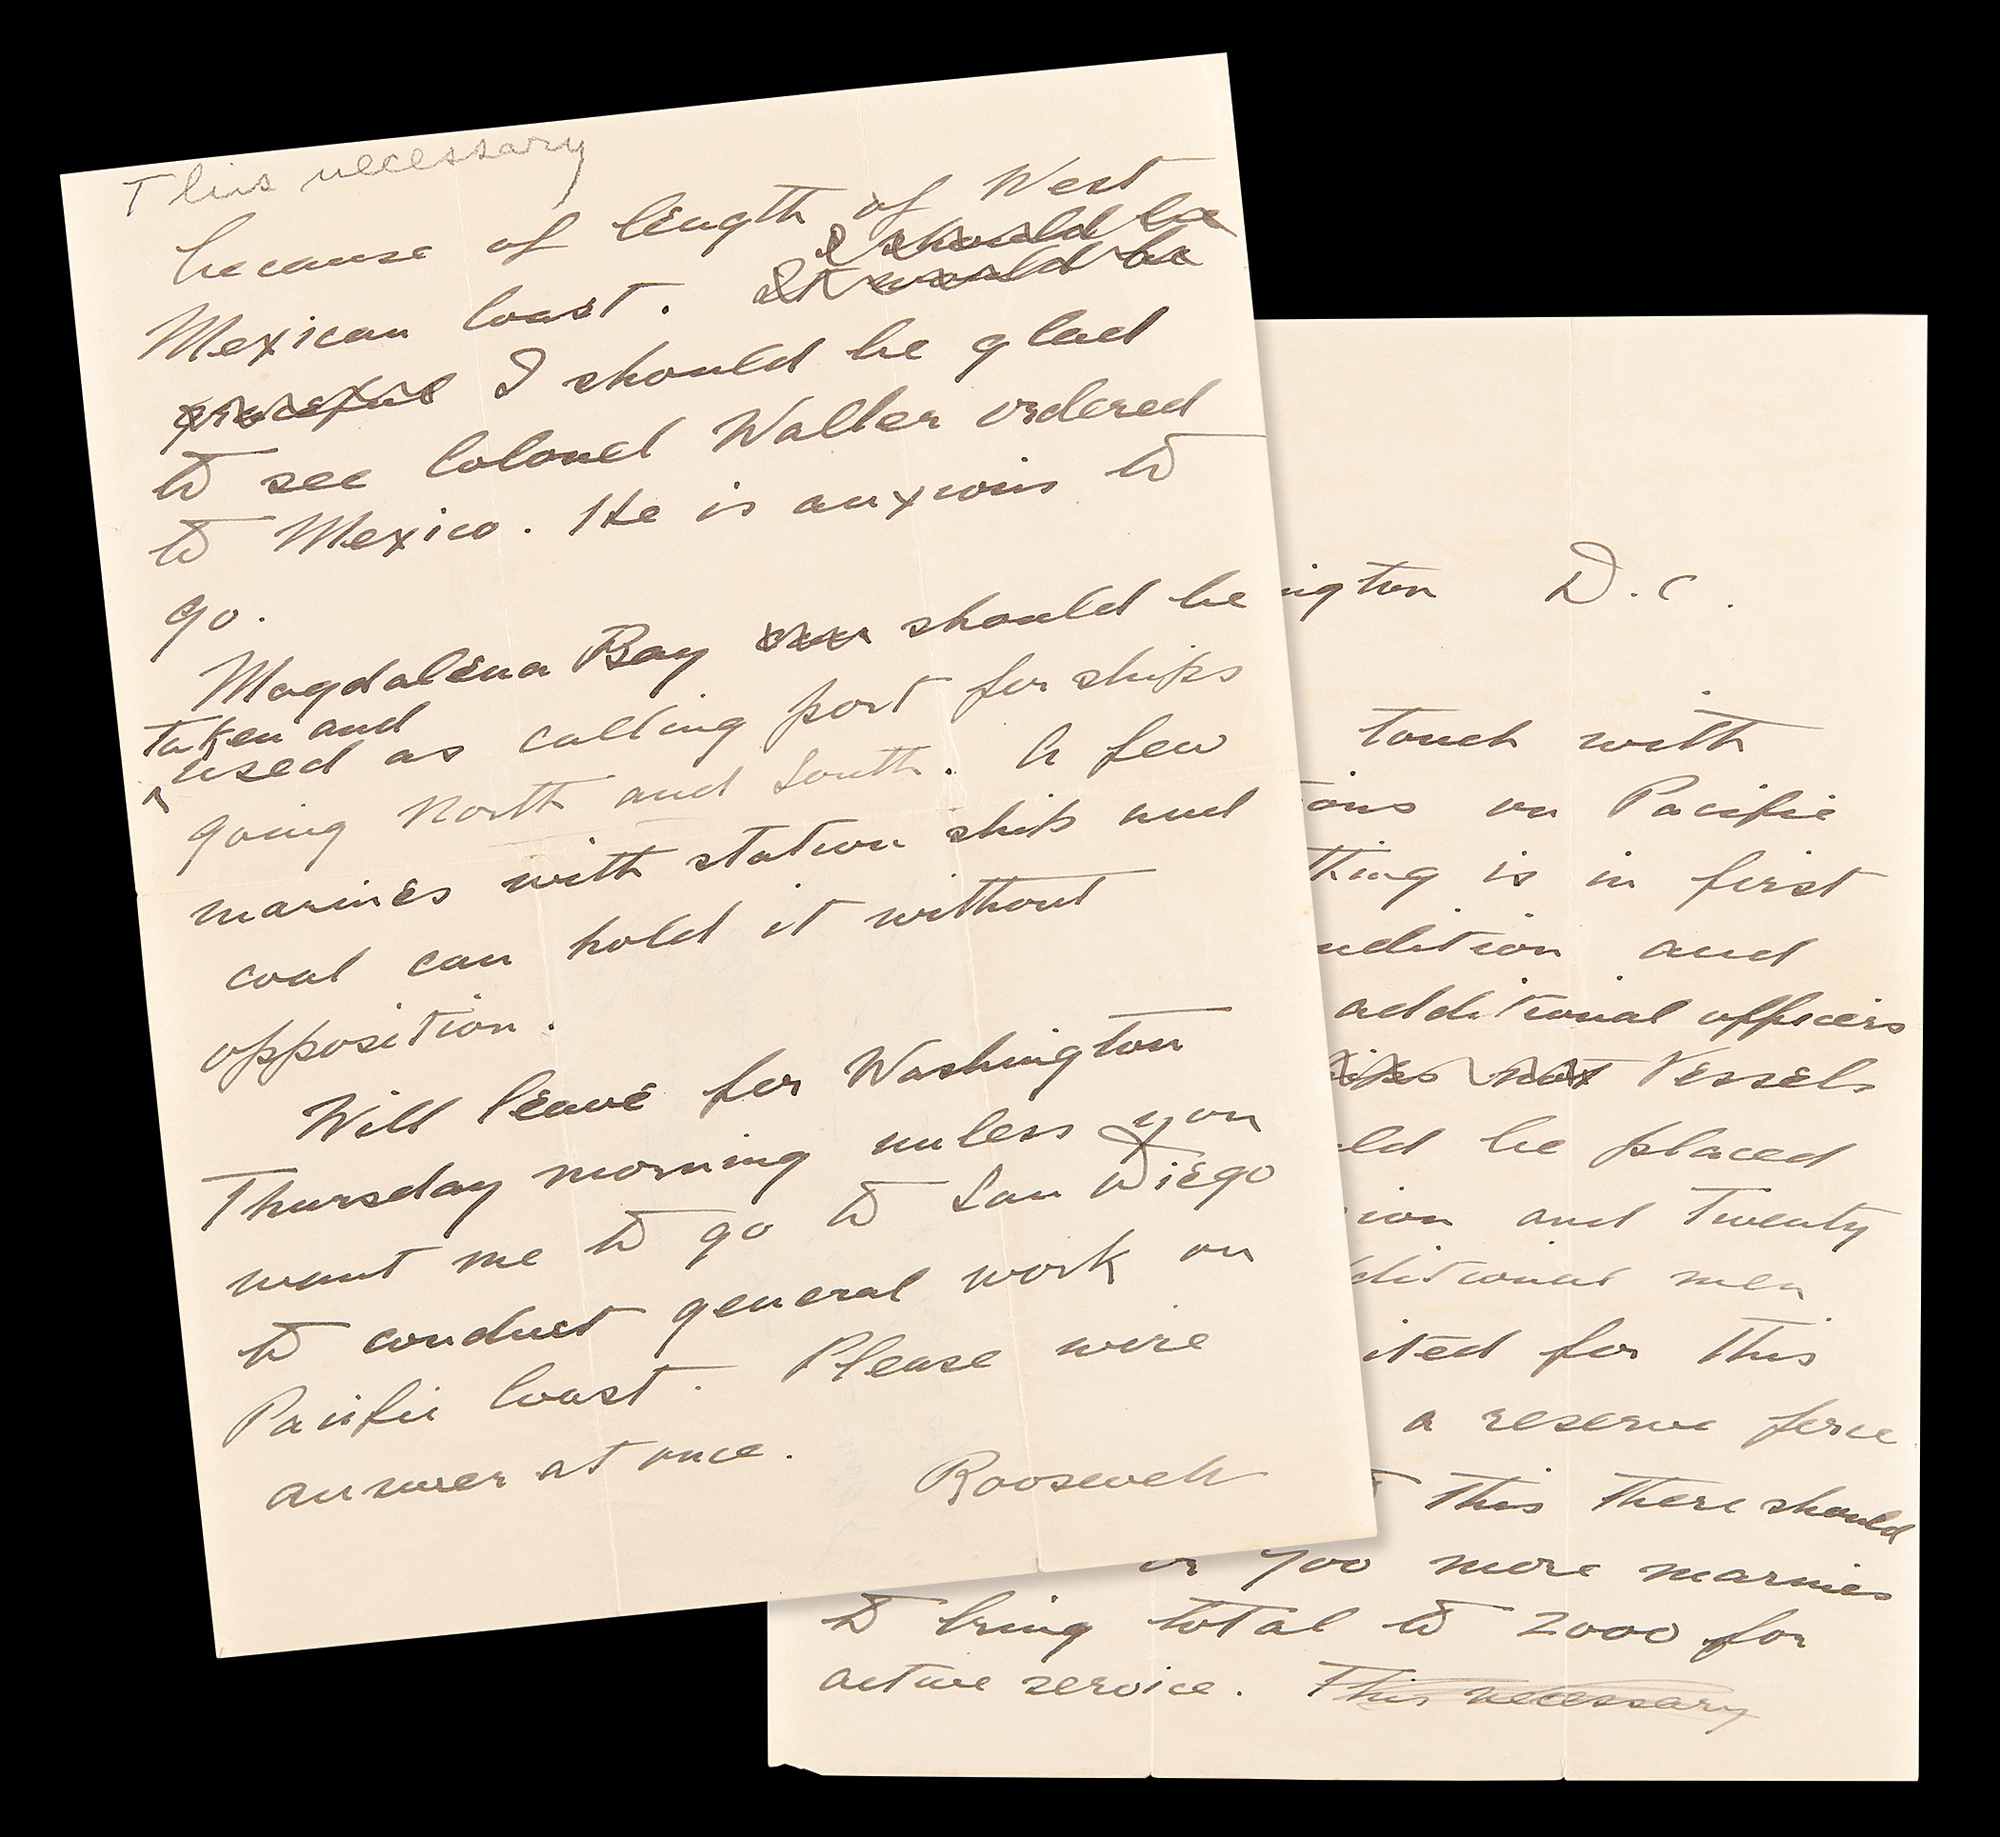 This necessary
because of length of West
I should be
Mexican Coast. It would be
I should be glad
to see Colonel Waller ordered
to Mexico. He is anxious to
go.
Magdalena Bay should be
taken and
^used as calling port for ships
going North and South. A few
marines with station ship and
coal can hold it without
opposition.
Will leave for Washington
Thursday morning unless you
want me to go to San Diego
to conduct general work on
Pacific Coast. Please wire
answer at once.
Roosevelt
ington D.C.
touch with
ions on Pacific
thing is in first
ndition and
additional officers
not Vessels
ld be placed
ion and Twenty
ditional men
ited for this
a reserve force
this there should
or 700 more marines
to bring total to 2000 for
active service. This necessary